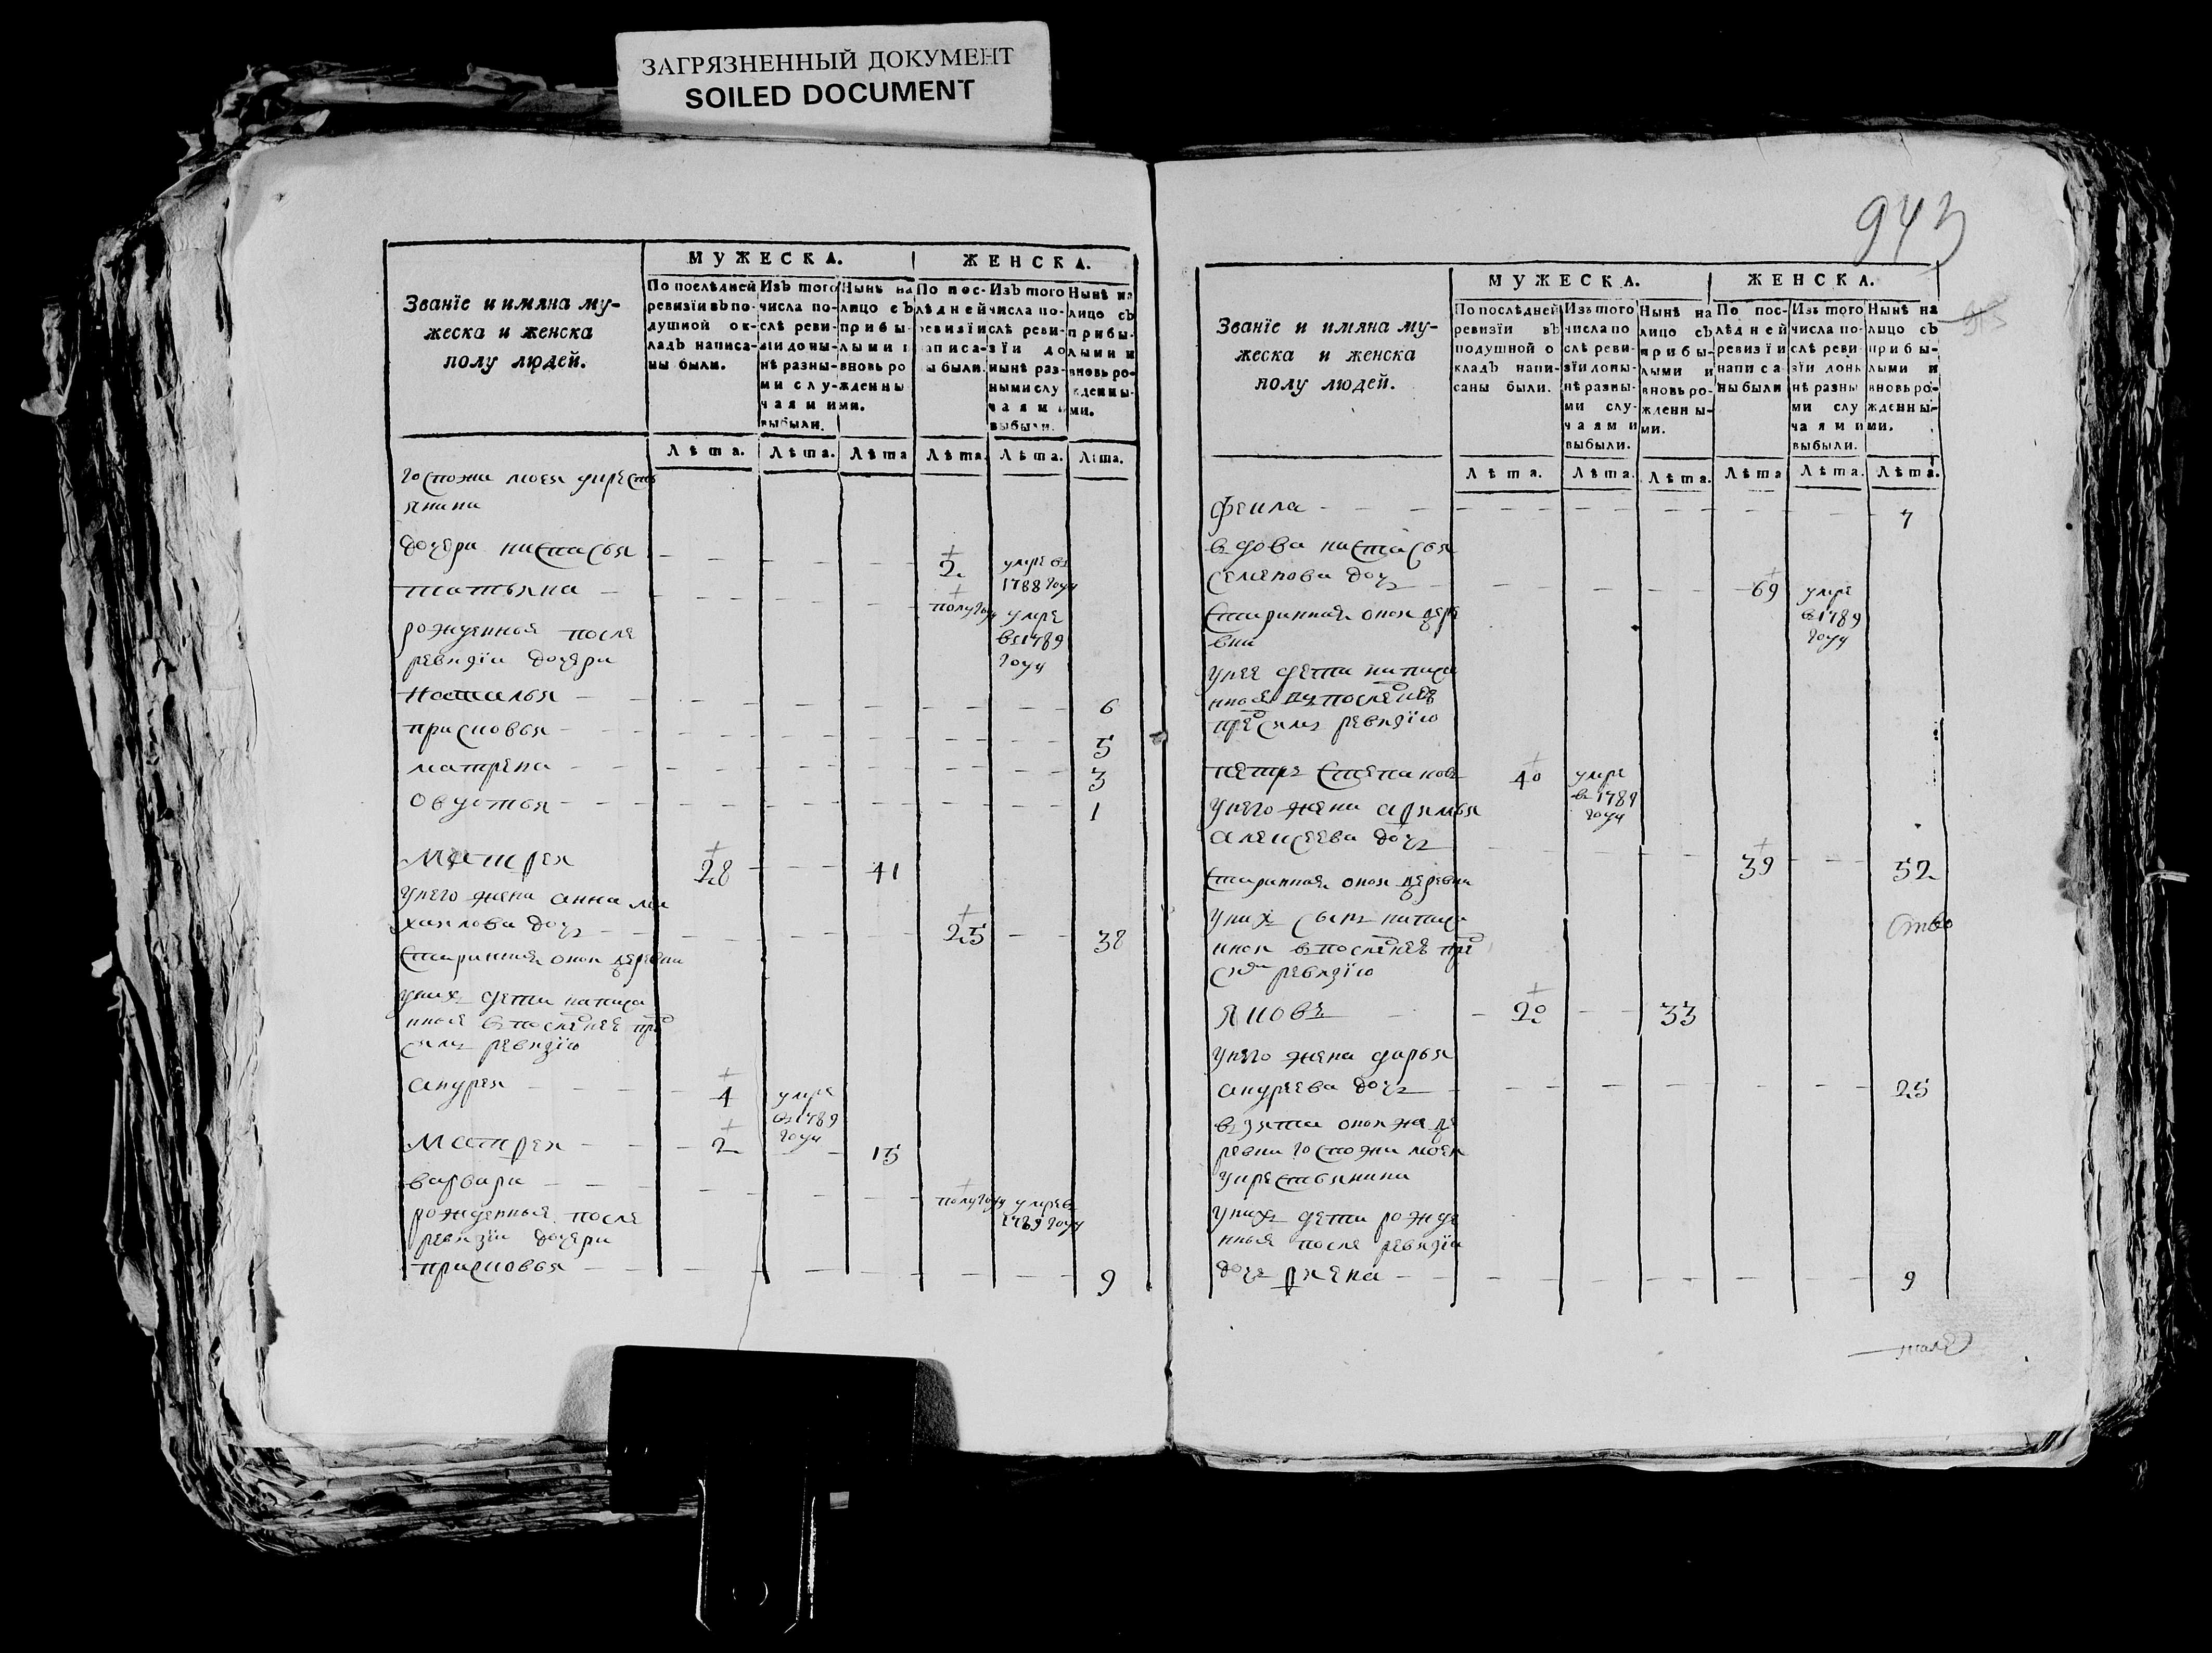 ЗАГРЯЗНЕННЫЙ ДОКУМЕНТ
SOILED DOCUMENT
Званїе и имяна му-
жеска и женска
полу людей.
МУЖЕСКА.
ЖЕНСКА.
По послѣдней
ревизїи въ по-
душной ок-
ладъ написа-
ны были.
Изъ того
числа по-
слѣ реви-
зїи доны-
нѣ разны-
ми слу-
чаями
выбыли.
Нынѣ на
лицо съ
прибы-
лыми и
вновь ро
жденны
ми.
По пос-
лѣдней
ревизїи
написа-
ы были.
Изъ того
числа по-
слѣ реви-
зїи до
нынѣ раз-
ными слу
чаями
выбыли.
Нынѣ на
лицо съ
прибы-
лыми и
вновь ро-
жденны-
ми.
Лѣта. Лѣта. Лѣта Лѣта. Лѣта. Лѣта.
госпожи моея укрестъ
янина
дочери настасья 2 умре въ
1788 году
татьяна полугоду умре
въ 1789
году
рожденныя после
ревизїи дочери
наталья 6
прасковья 5
матрена 3
овдотья 1
Матфея 28 41
унего жена анна ми
хаилова дочь 25 38
старинная оной деревни
уних дети написа
нныя в последнею пре
сим ревизїю
андрея 4 умре
въ 1789
году
Матфея 2 13
варвара полугоду умре въ
1789 году
рожденныя после
ревизїи дочери
прасковья 9
943
Званїе и имяна му-
жеска и женска
полу людей.
МУЖЕСКА.
ЖЕНСКА.
По послѣдней
ревизїи въ
подушной о
кладъ напи-
саны были.
Изъ того
числа по
слѣ реви-
зїи доны-
нѣ разны-
ми слу-
чаями
выбыли.
Нынѣ на
лицо съ
прибы-
лыми и
вновь ро-
жденны-
ми.
По пос-
лѣдней
ревизїи
написа-
ны были
Изъ того
числа по-
слѣ реви
зїи доны
нѣ разны
ми слу
чаями
выбыли.
Нынѣ на
лицо съ
прибы-
лыми и
вновь ро-
жденны-
ми.
Лѣта. Лѣта. Лѣта. Лѣта Лѣта. Лѣта.
фекла 7
вдова настасья
семенова дочь 69 умре
въ 1789
году
старинная оной дере
вни
унее дети написа
нныя последнею
пре сим ревизїю
петръ степановъ 40 умре
въ 1789
году
унего жена
алексеева дочь 39 52
старинная оной деревни
уних сынъ написа
нной в последнею пре
сим ревизїю
яковъ 20 33
унего жена дарья
андреева дочь 25
взята оной же де
ревни госпожи моей
укрестьянина
уних дети рожде
нныя после ревизїи
дочь 9